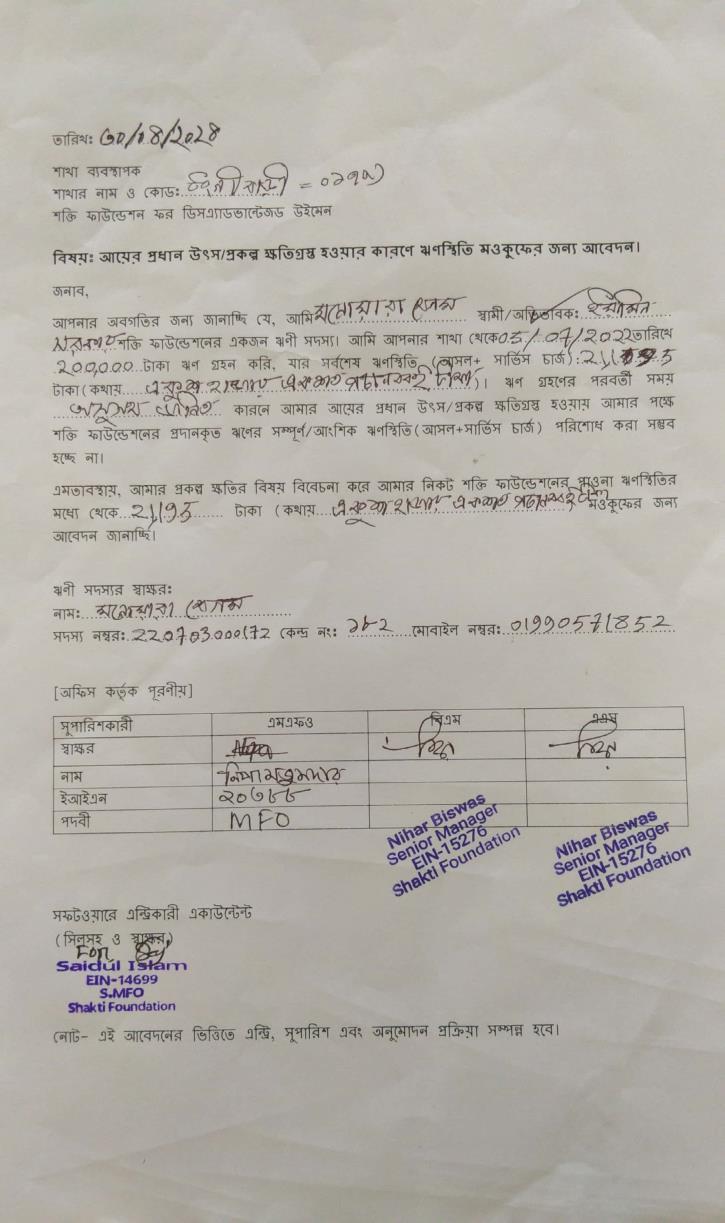 তারিখ: ৩০/০৪/২০২৪
শাখা ব্যবস্থাপক
শাখার নাম ও কোড: = ০১৭৩
শক্তি ফাউন্ডেশন ফর ডিসএ্যাডভান্টেজড উইমেন
বিষয়: আয়ের প্রধান উৎস/প্রকল্প ক্ষতিগ্রস্থ হওয়ার কারণে ঋণস্থিতি মওকুফের জন্য আবেদন।
জনাব,
আপনার অবগতির জন্য জানাচ্ছি যে, আমি মনোয়ারা বেগম স্বামী/অভিভাবক:
শক্তি ফাউন্ডেশনের একজন ঋণী সদস্য। আমি আপনার শাখা থেকে 05/07/2022 তারিখে
200,000 টাকা ঋণ গ্রহন করি, যার সর্বশেষ ঋণস্থিতি (আসল+ সার্ভিস চার্জ):
টাকা (কথায় একুশ হাজার একশত পচানব্বই টাকা)। ঋণ গ্রহণের পরবর্তী সময়
কারনে আমার আয়ের প্রধান উৎস/প্রকল্প ক্ষতিগ্রস্থ হওয়ায় আমার পক্ষে
শক্তি ফাউন্ডেশনের প্রদানকৃত ঋণের সম্পূর্ণ/আংশিক ঋণস্থিতি (আসল+সার্ভিস চার্জ) পরিশোধ করা সম্ভব
হচ্ছে না।
এমতাবস্থায়, আমার প্রকল্প ক্ষতির বিষয় বিবেচনা করে আমার নিকট শক্তি ফাউন্ডেশনের পাওনা ঋণস্থিতির
মধ্যে থেকে 21,195 টাকা (কথায় একুশ হাজার একশত পচানব্বই টাকা মওকুফের জন্য
আবেদন জানাচ্ছি।
ঋণী সদস্যর স্বাক্ষর:
নাম: মনোয়ারা বেগম
সদস্য নম্বর: 220703000172 কেন্দ্র নং: ১৮২ মোবাইল নম্বর: 01990571852
[অফিস কর্তৃক পূরণীয়]
সুপারিশকারী এমএফও বিএম এএম
স্বাক্ষর
নাম নিপা মজুমদার
ইআইএন ২০৩৮৮
পদবী MFO
Nihar Biswas
Senior Manager
EIN-15276
Shakti Foundation
Nihar Biswas
Senior Manager
EIN-15276
Shakti Foundation
সফটওয়ারে এন্ট্রিকারী একাউন্টেন্ট
(সিলসহ ও স্বাক্ষর)
For
Saidul Islam
EIN-14699
S.MFO
Shakti Foundation
নোট- এই আবেদনের ভিত্তিতে এন্ট্রি, সুপারিশ এবং অনুমোদন প্রক্রিয়া সম্পন্ন হবে।